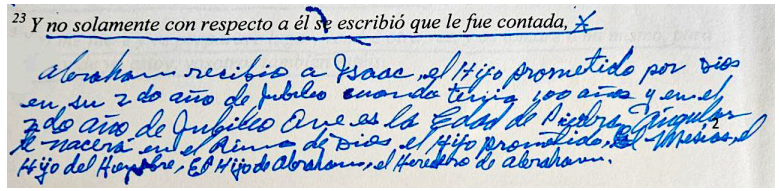 23 Y no solamente con respecto a él se escribió que le fue contada, X
Abraham recibio a Isaac, el Hijo prometido por Dios
en su 2do año de Jubileo cuando tenia 100 años y en el
2do año de Jubileo Que es la Edad de Piedra Angular
le nacerá en el Reino de Dios el Hijo prometido, El Mesías, el
Hijo del Hombre, El Hijo de Abraham, el Heredero de Abraham.